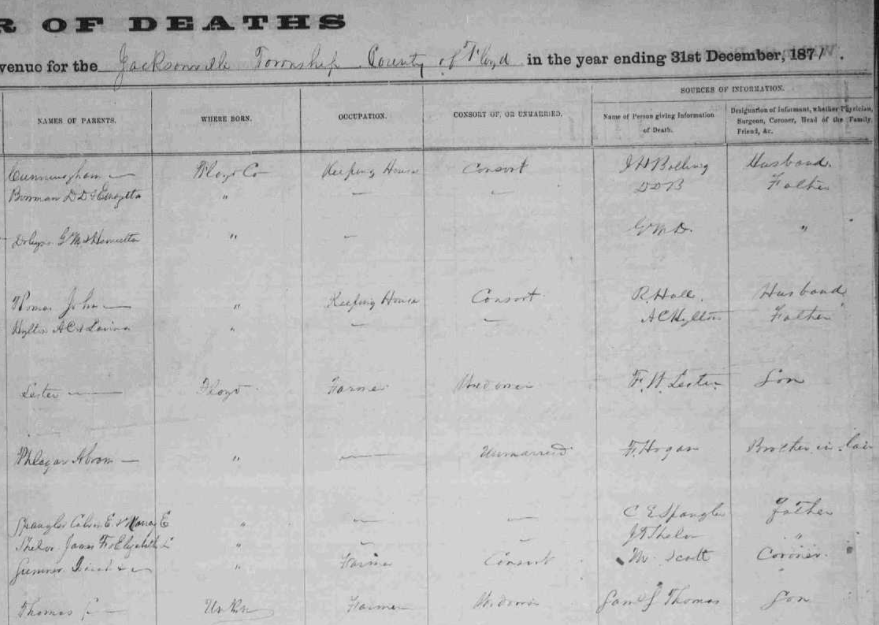 R OF DEATHS
venue for the Jacksonville Township County of Floyd in the year ending 31st December, 187
SOURCES OF INFORMATION.
NAMES OF PARENTS. WHERE BORN. OCCUPATION. CONSORT OF, OR UNMARRIED. Name of Person giving Information of Death. Designation of Informant, whether Physician, Surgeon, Coroner, Head of the Family, Friend, &c.
Cunningham — Floyd Co Keeping House Consort Husband
Bowman D D & " — — D D B Father
G. M. & " — G M D. "
Thomas John — " Keeping House Consort R Hall. Husband
Hylton A C & Lavina " — — A C Hylton Father
Lester — Floyd Farmer Widower F. W Lester Son
Phlegar Abram — " — Unmarried F. Hogan Brother in law
Spangler E & E " — — C E Spangler Father
F & Elizabeth " — — J F "
Sumner " Farmer Consort M Scott Coroner
Thomas — Unkn Farmer Widower Thomas Son